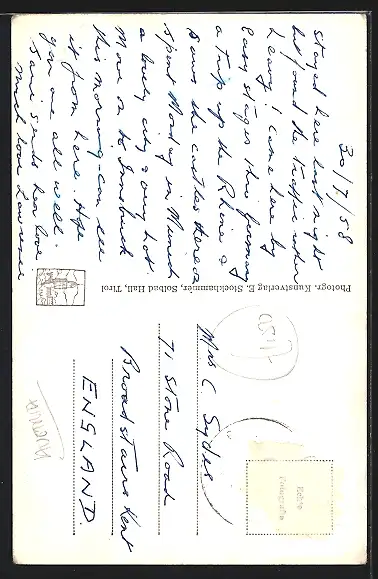 30/7/58
Stayed here last night
but found the traffic rather
heavy! Came here by
easy stages thro' Germany
a trip up the Rhine &
saw the castles there &
spent Monday in Munich
a lovely city & very hot.
Move on to Innsbruck
this morning can see
it from here. Hope
you are all well.
Jani sends her love
much love
Photogr. Kunstverlag E. Stockhammer, Solbad Hall, Tirol
Echte
Fotografie
Mrs C. Sydie
71 Stone Road
Broadstairs Kent
ENGLAND.